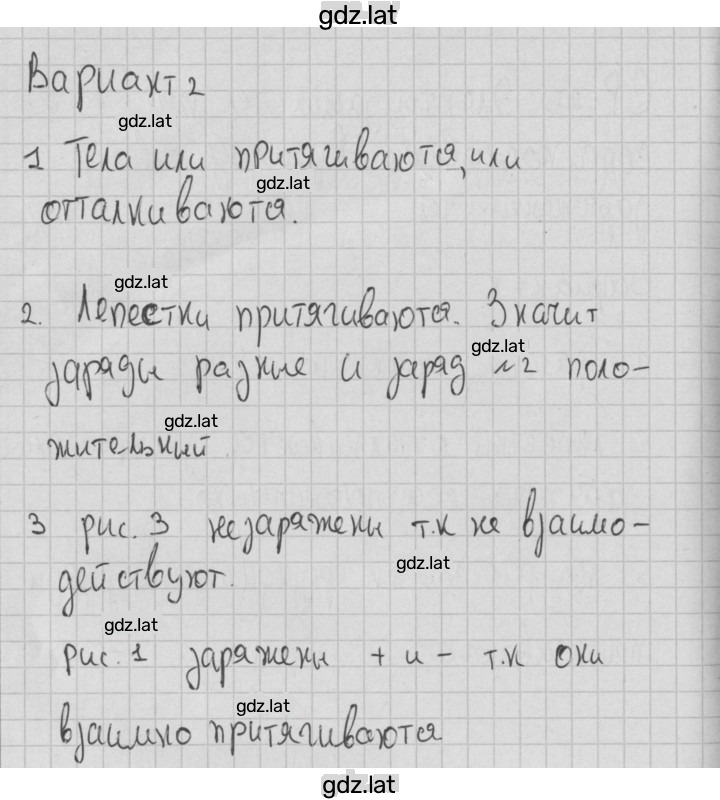 gdz.lat
Вариант 2
gdz.lat
1 Тела или притягиваются, или
gdz.lat
отталкиваются.
gdz.lat
2. Лепестки притягиваются. Значит
gdz.lat
заряды разные и заряд №2 поло-
gdz.lat
жительный
3 рис. 3 незаряжены т.к не взаимо-
gdz.lat
действуют.
gdz.lat
рис. 1 заряжены + и - т.к они
gdz.lat
взаимно притягиваются
gdz.lat